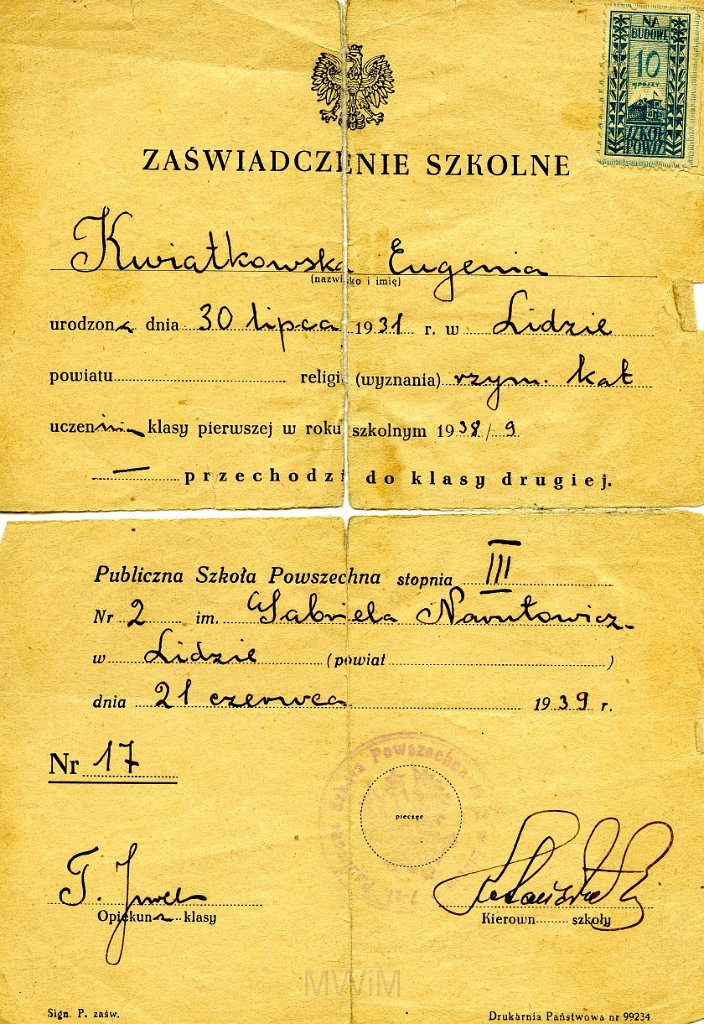 NA
BUDOWĘ
10
GROSZY
SZKÓŁ
POWSZ
ZAŚWIADCZENIE SZKOLNE
Kwiatkowska Eugenia
(nazwisko i imię)
urodzona dnia 30 lipca 1931 r. w Lidzie
powiatu religii (wyznania) rzym. kat
uczennia klasy pierwszej w roku szkolnym 1938/9
— przechodzi do klasy drugiej.
Publiczna Szkoła Powszechna stopnia III
Nr 2 im. Gabriela Narutowicz.
w Lidzie (powiat )
dnia 21 czerwca 1939 r.
Nr 17
Szkoła Powszechna
pieczęć
Opiekun klasy
Kierown szkoły
MWiM
Sign. P. zaśw.
Drukarnia Państwowa nr 99234.